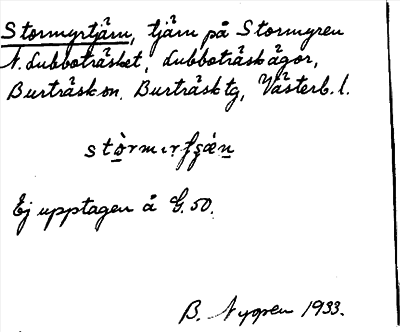 Stormyrtjärn, tjärn på Stormyren
N. Lubboträsket, Lubboträsk ägor,
Burträsk sn. Burträsk tg, Västerb. l.
Ej upptagen å G. 50.
B. Nygren 1933.